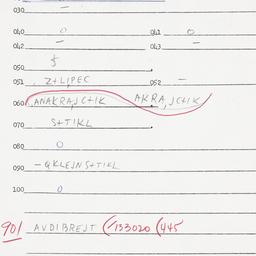 030 –
040 0 041 0
042 – 043 –
050 5
051 Z+LIPEC 052 –
060 ANAKRAJC+IK AKRAJC+IK
070 S+TIKL
080 0
090 –QKLEJNS+TIKL
100 0
901 AVDIBREJT (-133020 (445